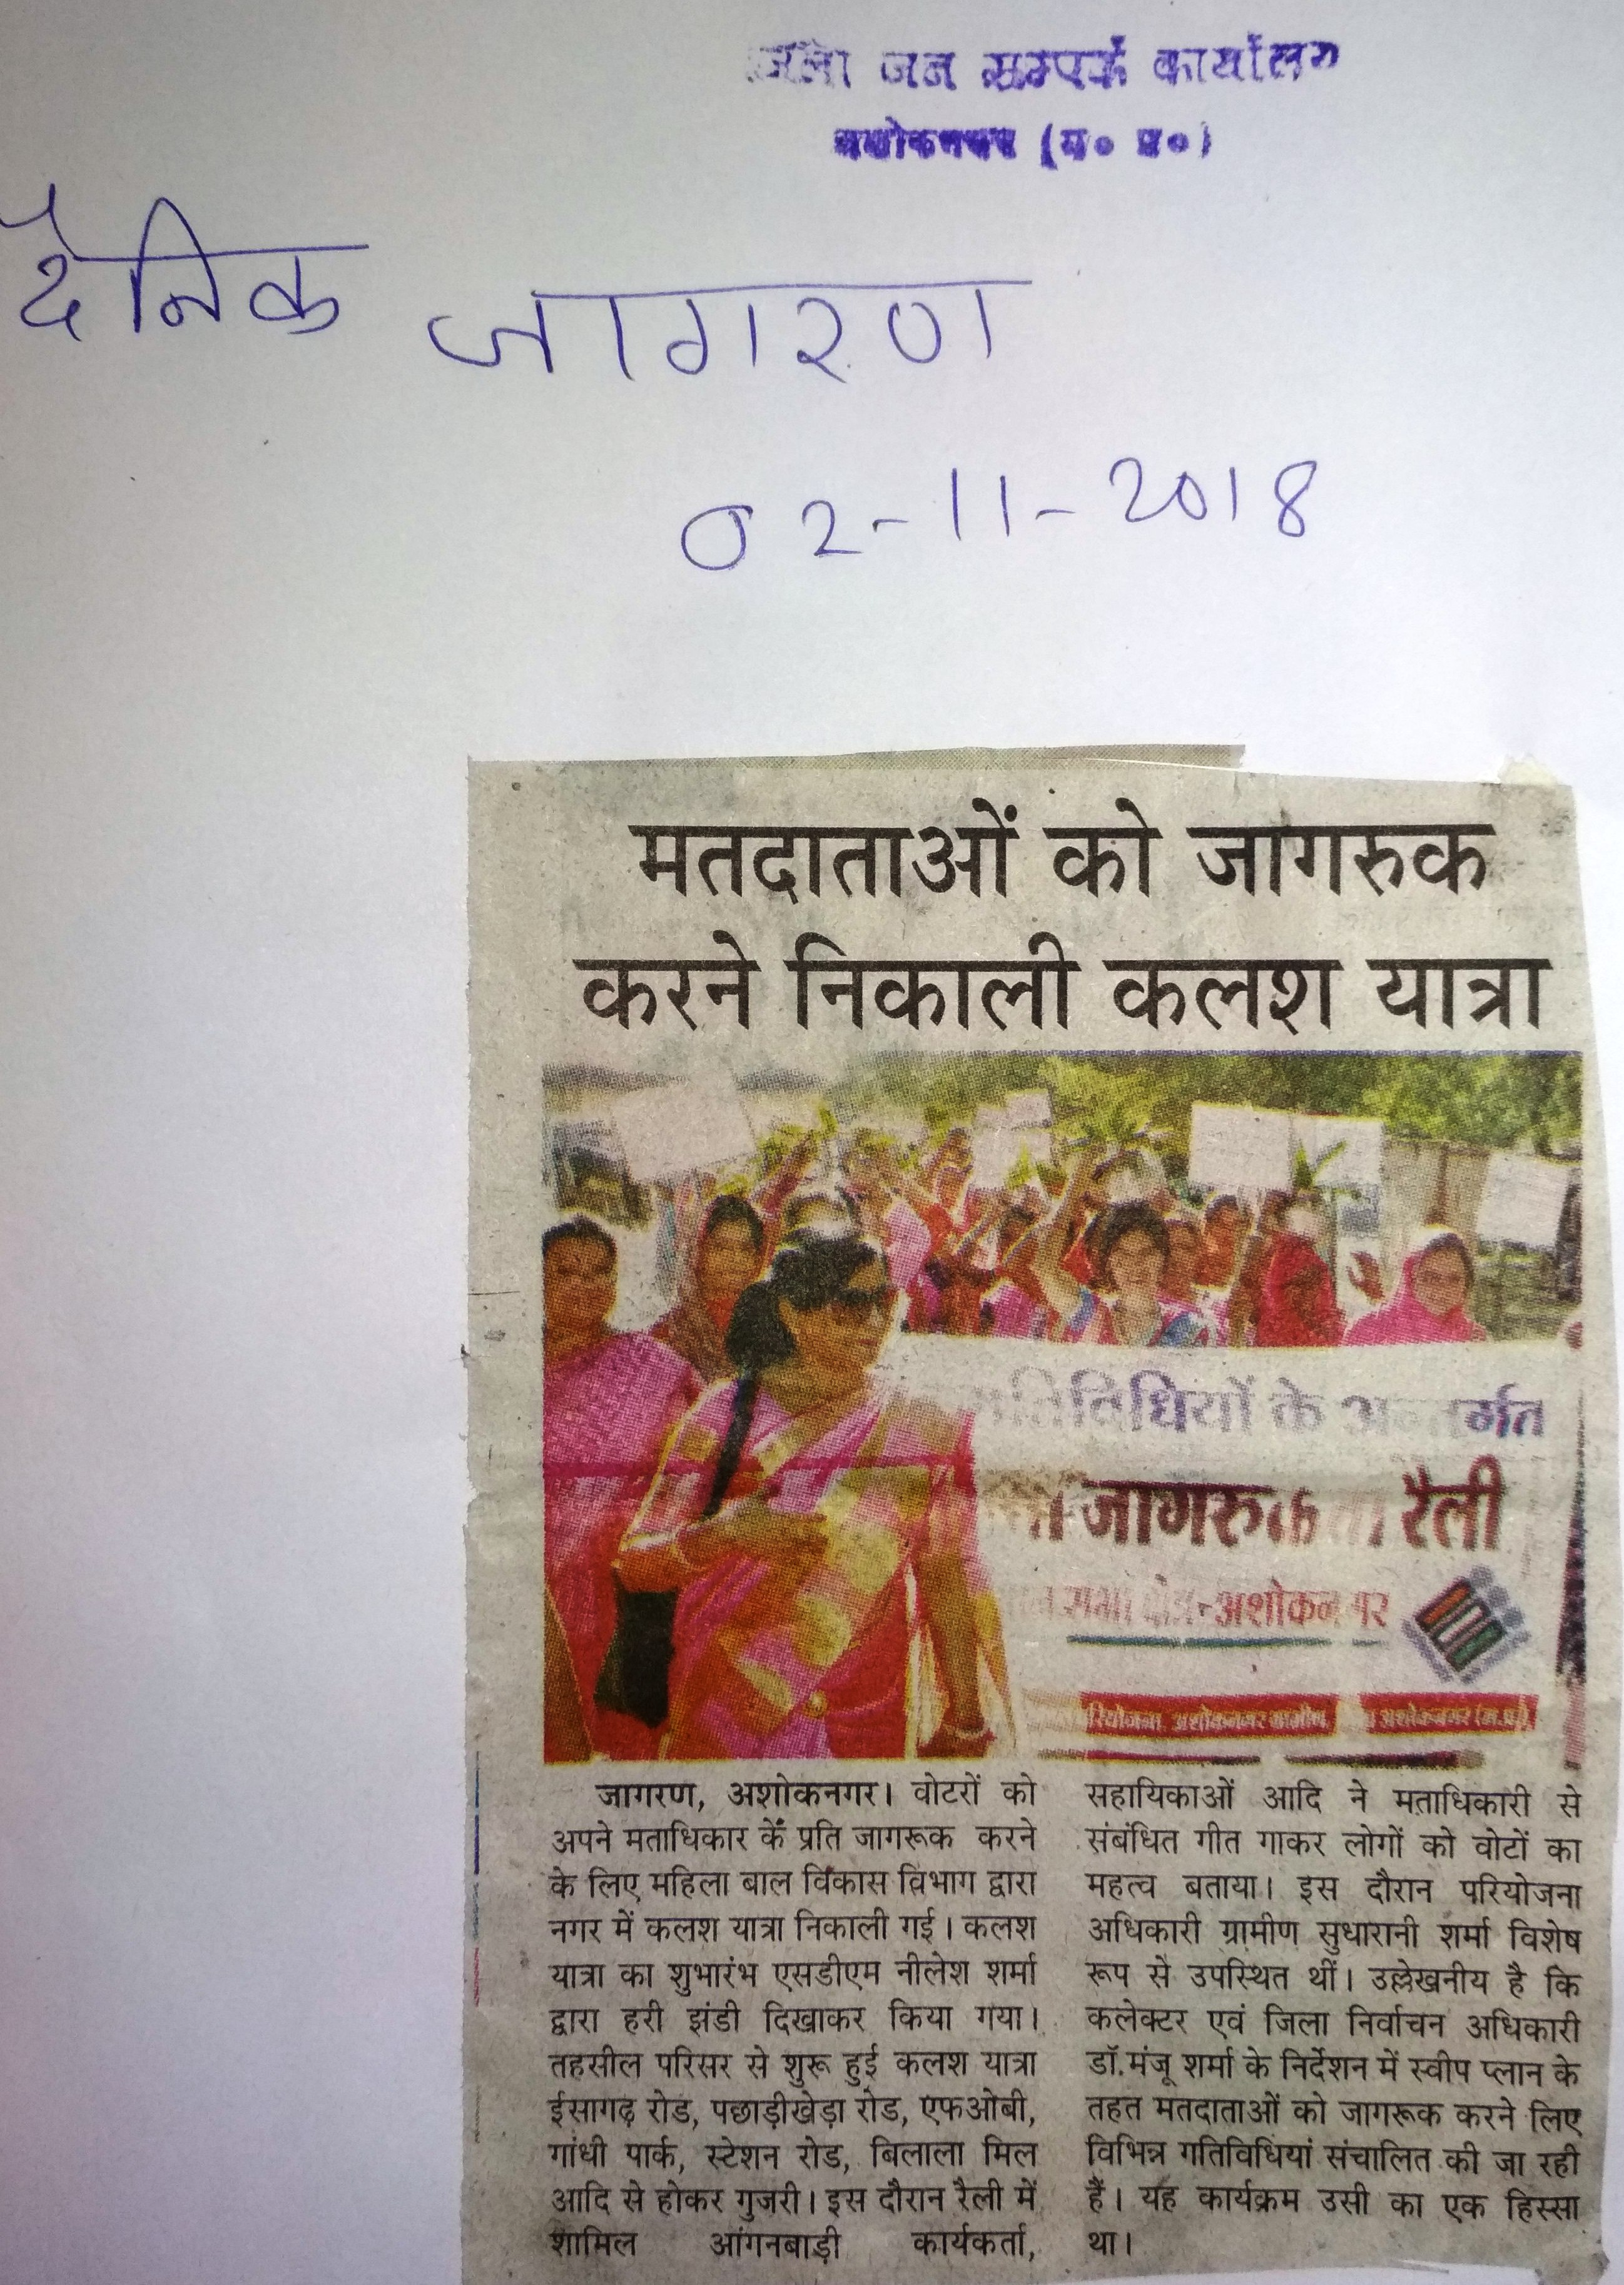 जिला जन सम्पर्क कार्यालय
अशोकनगर (म० प्र०)
दैनिक जागरण
02-11-2018
मतदाताओं को जागरुक
करने निकाली कलश यात्रा
गतिविधियों के अन्तर्गत
जागरुकता रैली
सभा क्षेत्र-अशोकनगर
रियोजना, अशोकनगर ग्रामीण, अशोकनगर (म.प्र.)
जागरण, अशोकनगर। वोटरों को
अपने मताधिकार कें प्रति जागरूक करने
के लिए महिला बाल विकास विभाग द्वारा
नगर में कलश यात्रा निकाली गई। कलश
यात्रा का शुभारंभ एसडीएम नीलेश शर्मा
द्वारा हरी झंडी दिखाकर किया गया।
तहसील परिसर से शुरू हुई कलश यात्रा
ईसागढ़ रोड, पछाड़ीखेड़ा रोड, एफओबी,
गांधी पार्क, स्टेशन रोड, बिलाला मिल
आदि से होकर गुजरी। इस दौरान रैली में
शामिल आंगनबाड़ी कार्यकर्ता,
सहायिकाओं आदि ने मताधिकारी से
संबंधित गीत गाकर लोगों को वोटों का
महत्व बताया। इस दौरान परियोजना
अधिकारी ग्रामीण सुधारानी शर्मा विशेष
रूप से उपस्थित थीं। उल्लेखनीय है कि
कलेक्टर एवं जिला निर्वाचन अधिकारी
डॉ.मंजू शर्मा के निर्देशन में स्वीप प्लान के
तहत मतदाताओं को जागरूक करने लिए
विभिन्न गतिविधियां संचालित की जा रही
हैं। यह कार्यक्रम उसी का एक हिस्सा
था।